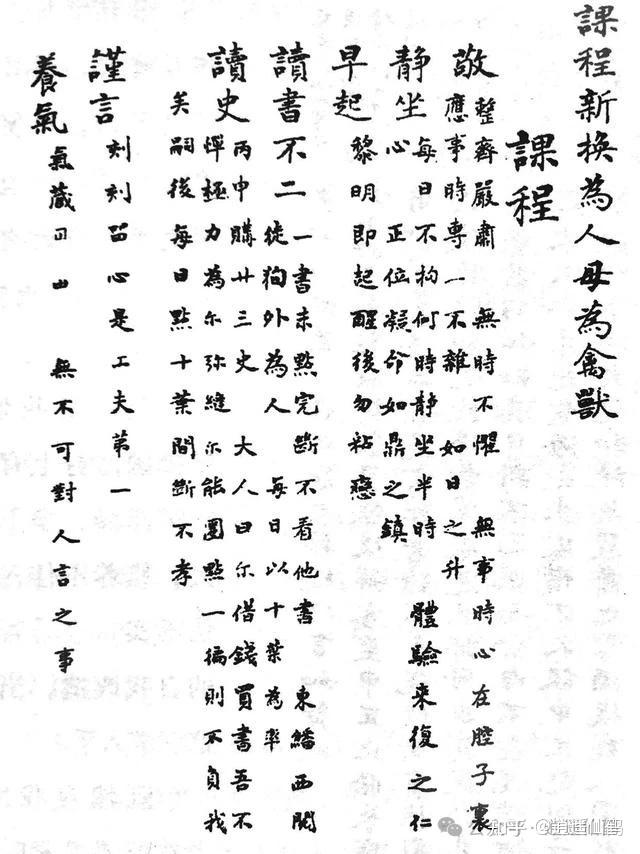 課程新換為人毋為禽獸
課程
敬 整齊嚴肅 無時不懼 無事時心在腔子裏
應事時專一不雜 如日之升
靜坐 每日不拘何時靜坐半時 體驗來復之仁
心 正位凝命如鼎之鎮
早起 黎明即起醒後勿粘戀
讀書不二 一書未點完斷不看他書 東繙西閱
徒狥外為人 每日以十葉為率
讀史 丙申購廿三史 大人曰尔借錢買書吾不
憚極力為尔弥縫尔能圈點一徧則不負我
矣嗣後每日點十葉間斷不孝
謹言 刻刻畱心是工夫第一
養氣 氣藏 無不可對人言之事